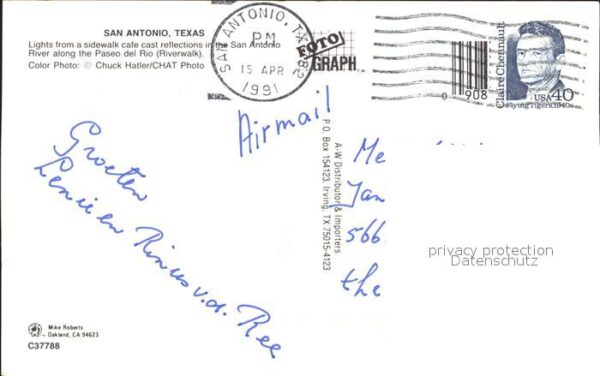 SAN ANTONIO, TEXAS
Lights from a sidewalk cafe cast reflections in the San Antonio
River along the Paseo del Rio (Riverwalk).
Color Photo: © Chuck Hatler/CHAT Photo
SAN ANTONIO, TX 782
PM
15 APR
1991
FOTO
GRAPH
0 908
Claire Chennault
USA 40
Flying Tigers, 1940s
Airmail
Groeten
en Rinus v.d. Ree
A-W Distributor & Importers
P.O. Box 154123, Irving, TX 75015-4123
Me
Jan
566
the
privacy protection
Datenschutz
Mike Roberts
Oakland, CA 94623
C37788